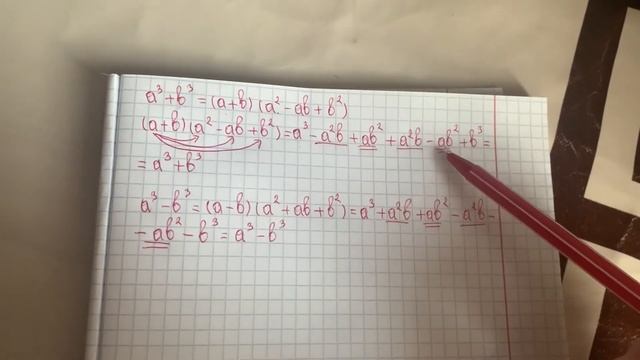 a³+b³ = (a+b)(a²-ab+b²)
(a+b)(a²-ab+b²)=a³-a²b+ab²+a²b-ab²+b³=
= a³+b³
a³-b³ = (a-b)(a²+ab+b²)= a³+a²b+ab²-a²b-
-ab²-b³ = a³-b³